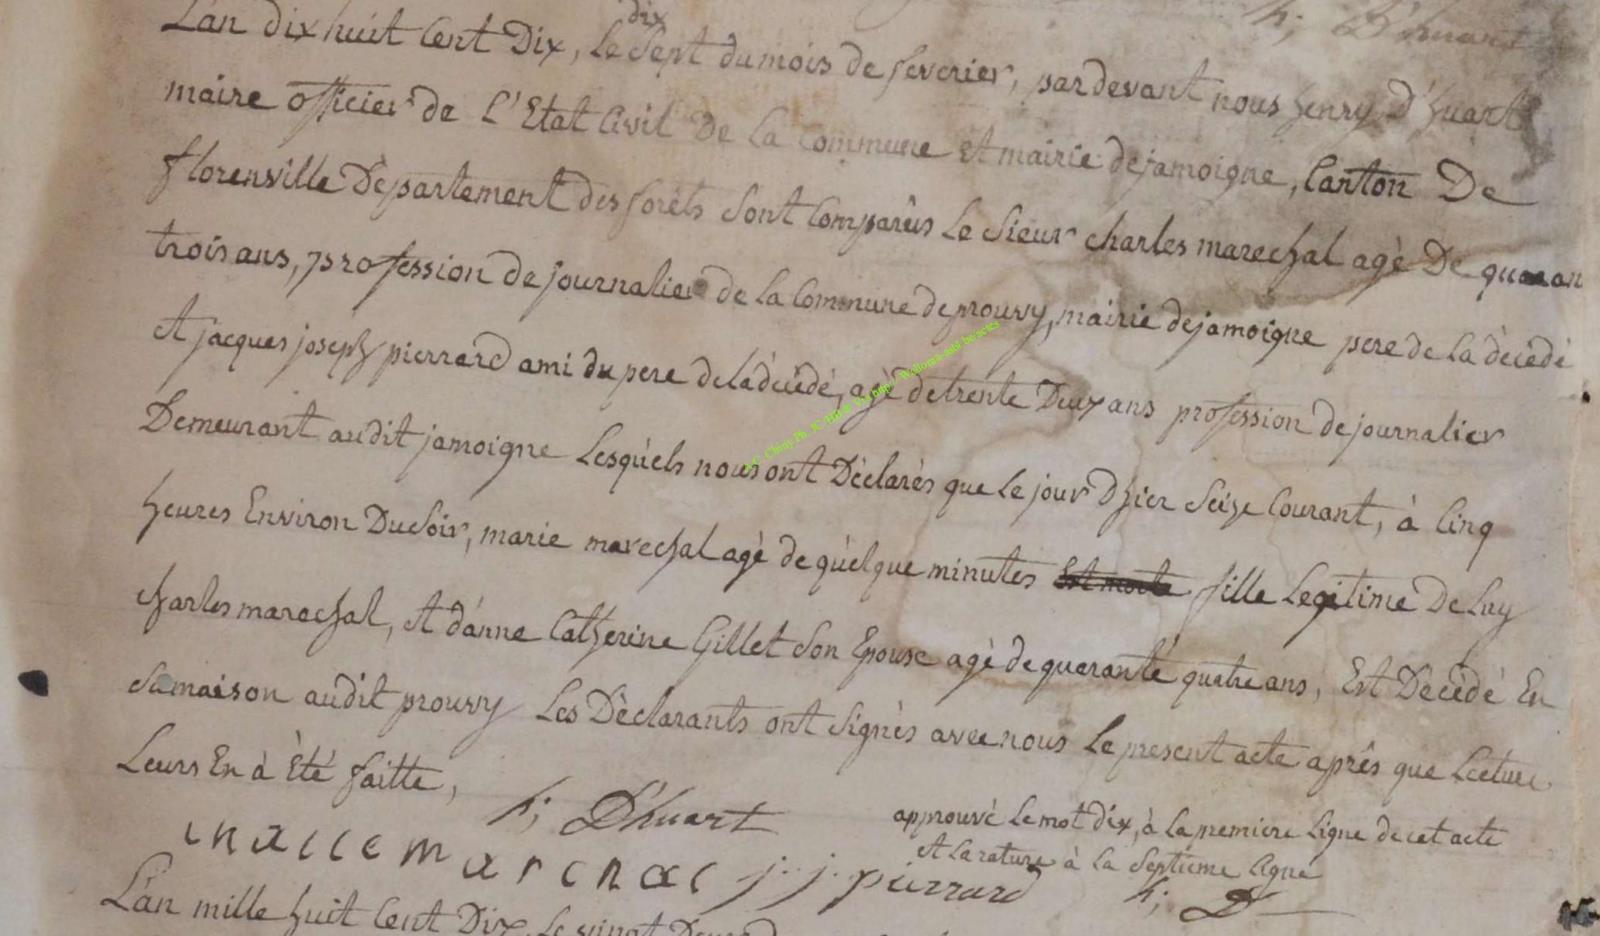 h; D'huart
L'an dix huit Cent Dix, le dix sept du mois de feverier, par devant nous henry D'huart
maire officier de L'Etat Civil De la Commune et mairie de jamoigne, Canton De
florenville Dèpartement des forêts sont Comparûs Le sieur charles marechal agè De quaran
trois ans, profession de journalier de la Commune de prouvy, mairie de jamoigne pere de la dècèdé
et jacques joseph pierrard ami du pere de la décédé, agè de trente Deux ans profession de journalier
Demeurant audit jamoigne Lesquels nous ont Dèclarès que le jour D'hier Seize Courant, à Cinq
heures Environ Du Soir, marie marechal agè de quèlque minutes Est morte fille Legitime De Luy
charles marechal, et d'anne Catherine Gillet Son Epouse agè de quarante quatre ans, Est Dècèdé En
Sa maison audit prouvy Les Dèclarants ont Signès avec nous Le present acte après que Lecture
Leurs En à èté faitte,
h; D'huart
approuvé le mot dix, à la premiere Ligne de cet acte
et la rature à la Septieme ligne
j: j: pierrard
h; D
L'an mille huit Cent Dix, le vingt
A.C. Chiny Ph. JC Hilbert